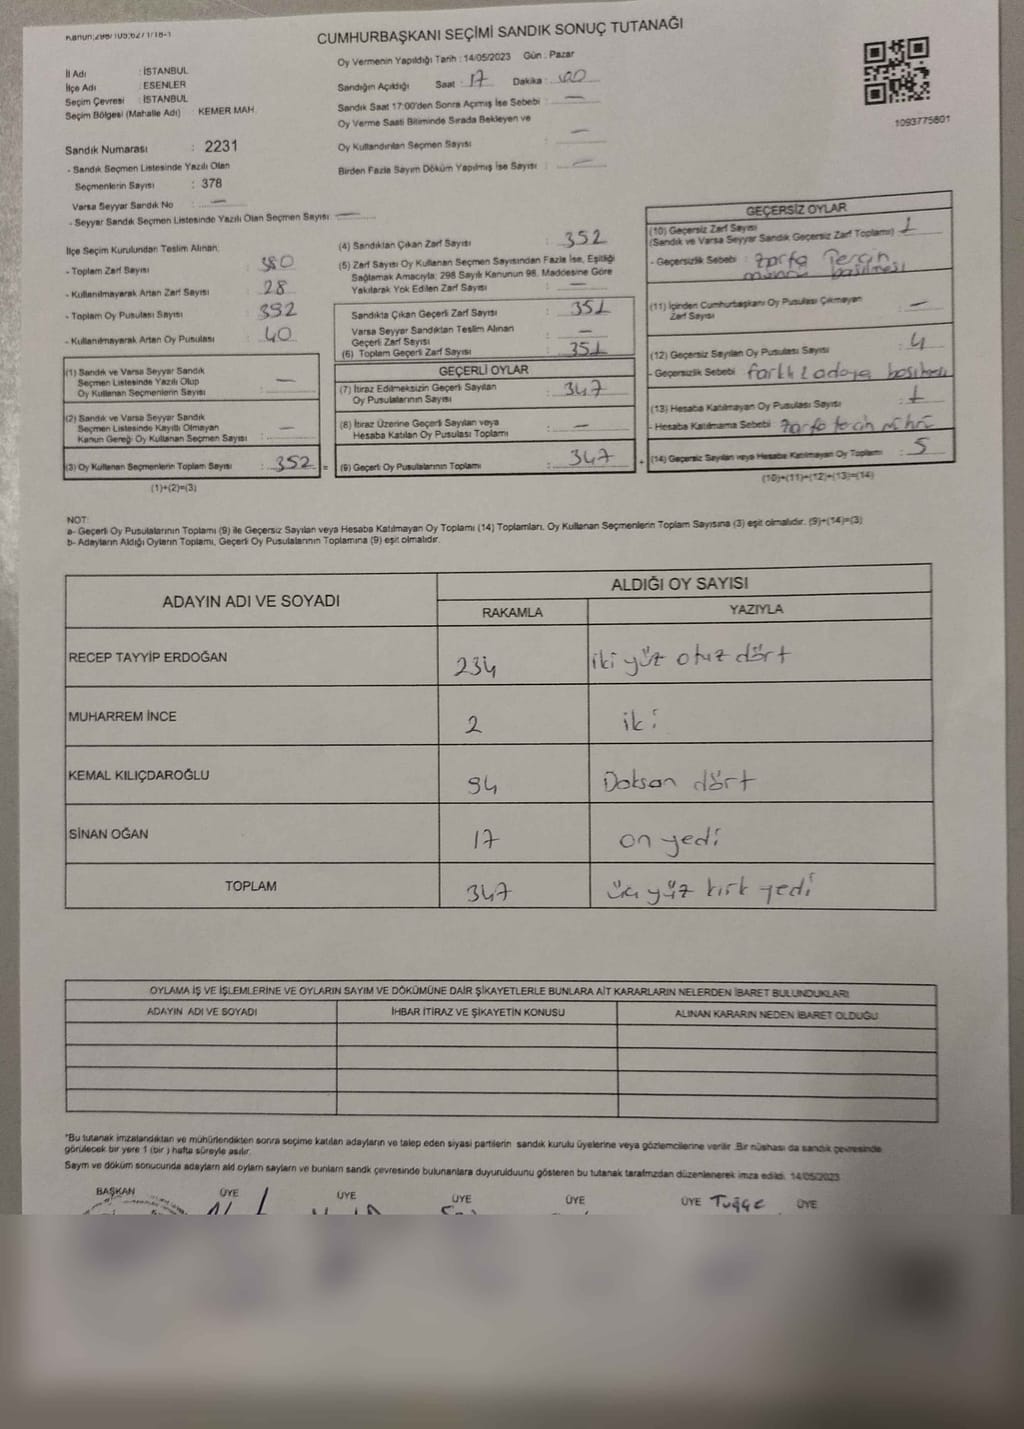 CUMHURBAŞKANI SEÇİMİ SANDIK SONUÇ TUTANAĞI
Oy Vermenin Yapıldığı Tarih : 14/05/2023 Gün : Pazar
İl Adı : İSTANBUL
İlçe Adı : ESENLER
Seçim Çevresi : İSTANBUL
Seçim Bölgesi (Mahalle Adı) : KEMER MAH.
Sandık Numarası : 2231
- Sandık Seçmen Listesinde Yazılı Olan
Seçmenlerin Sayısı : 378
Varsa Seyyar Sandık No : —
- Seyyar Sandık Seçmen Listesinde Yazılı Olan Seçmen Sayısı : —
Sandığın Açıldığı Saat : 17 Dakika : 00
Sandık Saat 17:00'den Sonra Açımış İse Sebebi : —
Oy Verme Saati Bitiminde Sırada Bekleyen ve
Oy Kullandırılan Seçmen Sayısı : —
Birden Fazla Sayım Döküm Yapılmış İse Sayısı : —
1093775801
İlçe Seçim Kurulundan Teslim Alınan;
- Toplam Zarf Sayısı : 380
- Kullanılmayarak Artan Zarf Sayısı : 28
- Toplam Oy Pusulası Sayısı : 392
- Kullanılmayarak Artan Oy Pusulası : 40
(1) Sandık ve Varsa Seyyar Sandık
Seçmen Listesinde Yazılı Olup
Oy Kullanan Seçmenlerin Sayısı : —
(2) Sandık ve Varsa Seyyar Sandık
Seçmen Listesinde Kayıtlı Olmayan
Kanun Gereği Oy Kullanan Seçmen Sayısı : —
(3) Oy Kullanan Seçmenlerin Toplam Sayısı : 352 =
(1)+(2)=(3)
(4) Sandıktan Çıkan Zarf Sayısı : 352
(5) Zarf Sayısı Oy Kullanan Seçmen Sayısından Fazla İse, Eşitliği
Sağlamak Amacıyla; 298 Sayılı Kanunun 98. Maddesine Göre
Yakılarak Yok Edilen Zarf Sayısı : —
Sandıkta Çıkan Geçerli Zarf Sayısı : 351
Varsa Seyyar Sandıktan Teslim Alınan
Geçerli Zarf Sayısı : —
(6) Toplam Geçerli Zarf Sayısı : 351
GEÇERLİ OYLAR
(7) İtiraz Edilmeksizin Geçerli Sayılan
Oy Pusulalarının Sayısı : 347
(8) İtiraz Üzerine Geçerli Sayılan veya
Hesaba Katılan Oy Pusulası Toplamı : —
(9) Geçerli Oy Pusulalarının Toplamı : 347 +
GEÇERSİZ OYLAR
(10) Geçersiz Zarf Sayısı
(Sandık ve Varsa Seyyar Sandık Geçersiz Zarf Toplamı) : 1
- Geçersizlik Sebebi : zarfa Tercih
mührü basılması
(11) İçinden Cumhurbaşkanı Oy Pusulası Çıkmayan
Zarf Sayısı : —
(12) Geçersiz Sayılan Oy Pusulası Sayısı : 4
- Geçersizlik Sebebi : farklı 2 adaya basılması
(13) Hesaba Katılmayan Oy Pusulası Sayısı : 1
- Hesaba Katılmama Sebebi : zarfa tercih mührü
(14) Geçersiz Sayılan veya Hesaba Katılmayan Oy Toplamı : 5
(10)+(11)+(12)+(13)=(14)
NOT:
a- Geçerli Oy Pusulalarının Toplamı (9) ile Geçersiz Sayılan veya Hesaba Katılmayan Oy Toplamı (14) Toplamları, Oy Kullanan Seçmenlerin Toplam Sayısına (3) eşit olmalıdır. (9)+(14)=(3)
b- Adayların Aldığı Oyların Toplamı, Geçerli Oy Pusulalarının Toplamına (9) eşit olmalıdır.
ADAYIN ADI VE SOYADI ALDIĞI OY SAYISI
RAKAMLA YAZIYLA
RECEP TAYYİP ERDOĞAN 234 iki yüz otuz dört
MUHARREM İNCE 2 iki
KEMAL KILIÇDAROĞLU 94 Doksan dört
SİNAN OĞAN 17 on yedi
TOPLAM 347 üç yüz kırk yedi
OYLAMA İŞ VE İŞLEMLERİNE VE OYLARIN SAYIM VE DÖKÜMÜNE DAİR ŞİKAYETLERLE BUNLARA AİT KARARLARIN NELERDEN İBARET BULUNDUKLARI
ADAYIN ADI VE SOYADI İHBAR İTİRAZ VE ŞİKAYETİN KONUSU ALINAN KARARIN NEDEN İBARET OLDUĞU
"Bu tutanak imzalandıktan ve mühürlendikten sonra seçime katılan adayların ve talep eden siyasi partilerin sandık kurulu üyelerine veya gözlemcilerine verilir .Bir nüshası da sandık çevresinde
görülecek bir yere 1 (bir ) hafta süreyle asılır.
Sayım ve döküm sonucunda adayların ald oyların sayların ve bunların sandık çevresinde bulunanlara duyurulduunu gösteren bu tutanak tarafmzdan düzenlenerek imza edildi. 14/05/2023
BAŞKAN ÜYE ÜYE ÜYE ÜYE ÜYE Tuğçe ÜYE